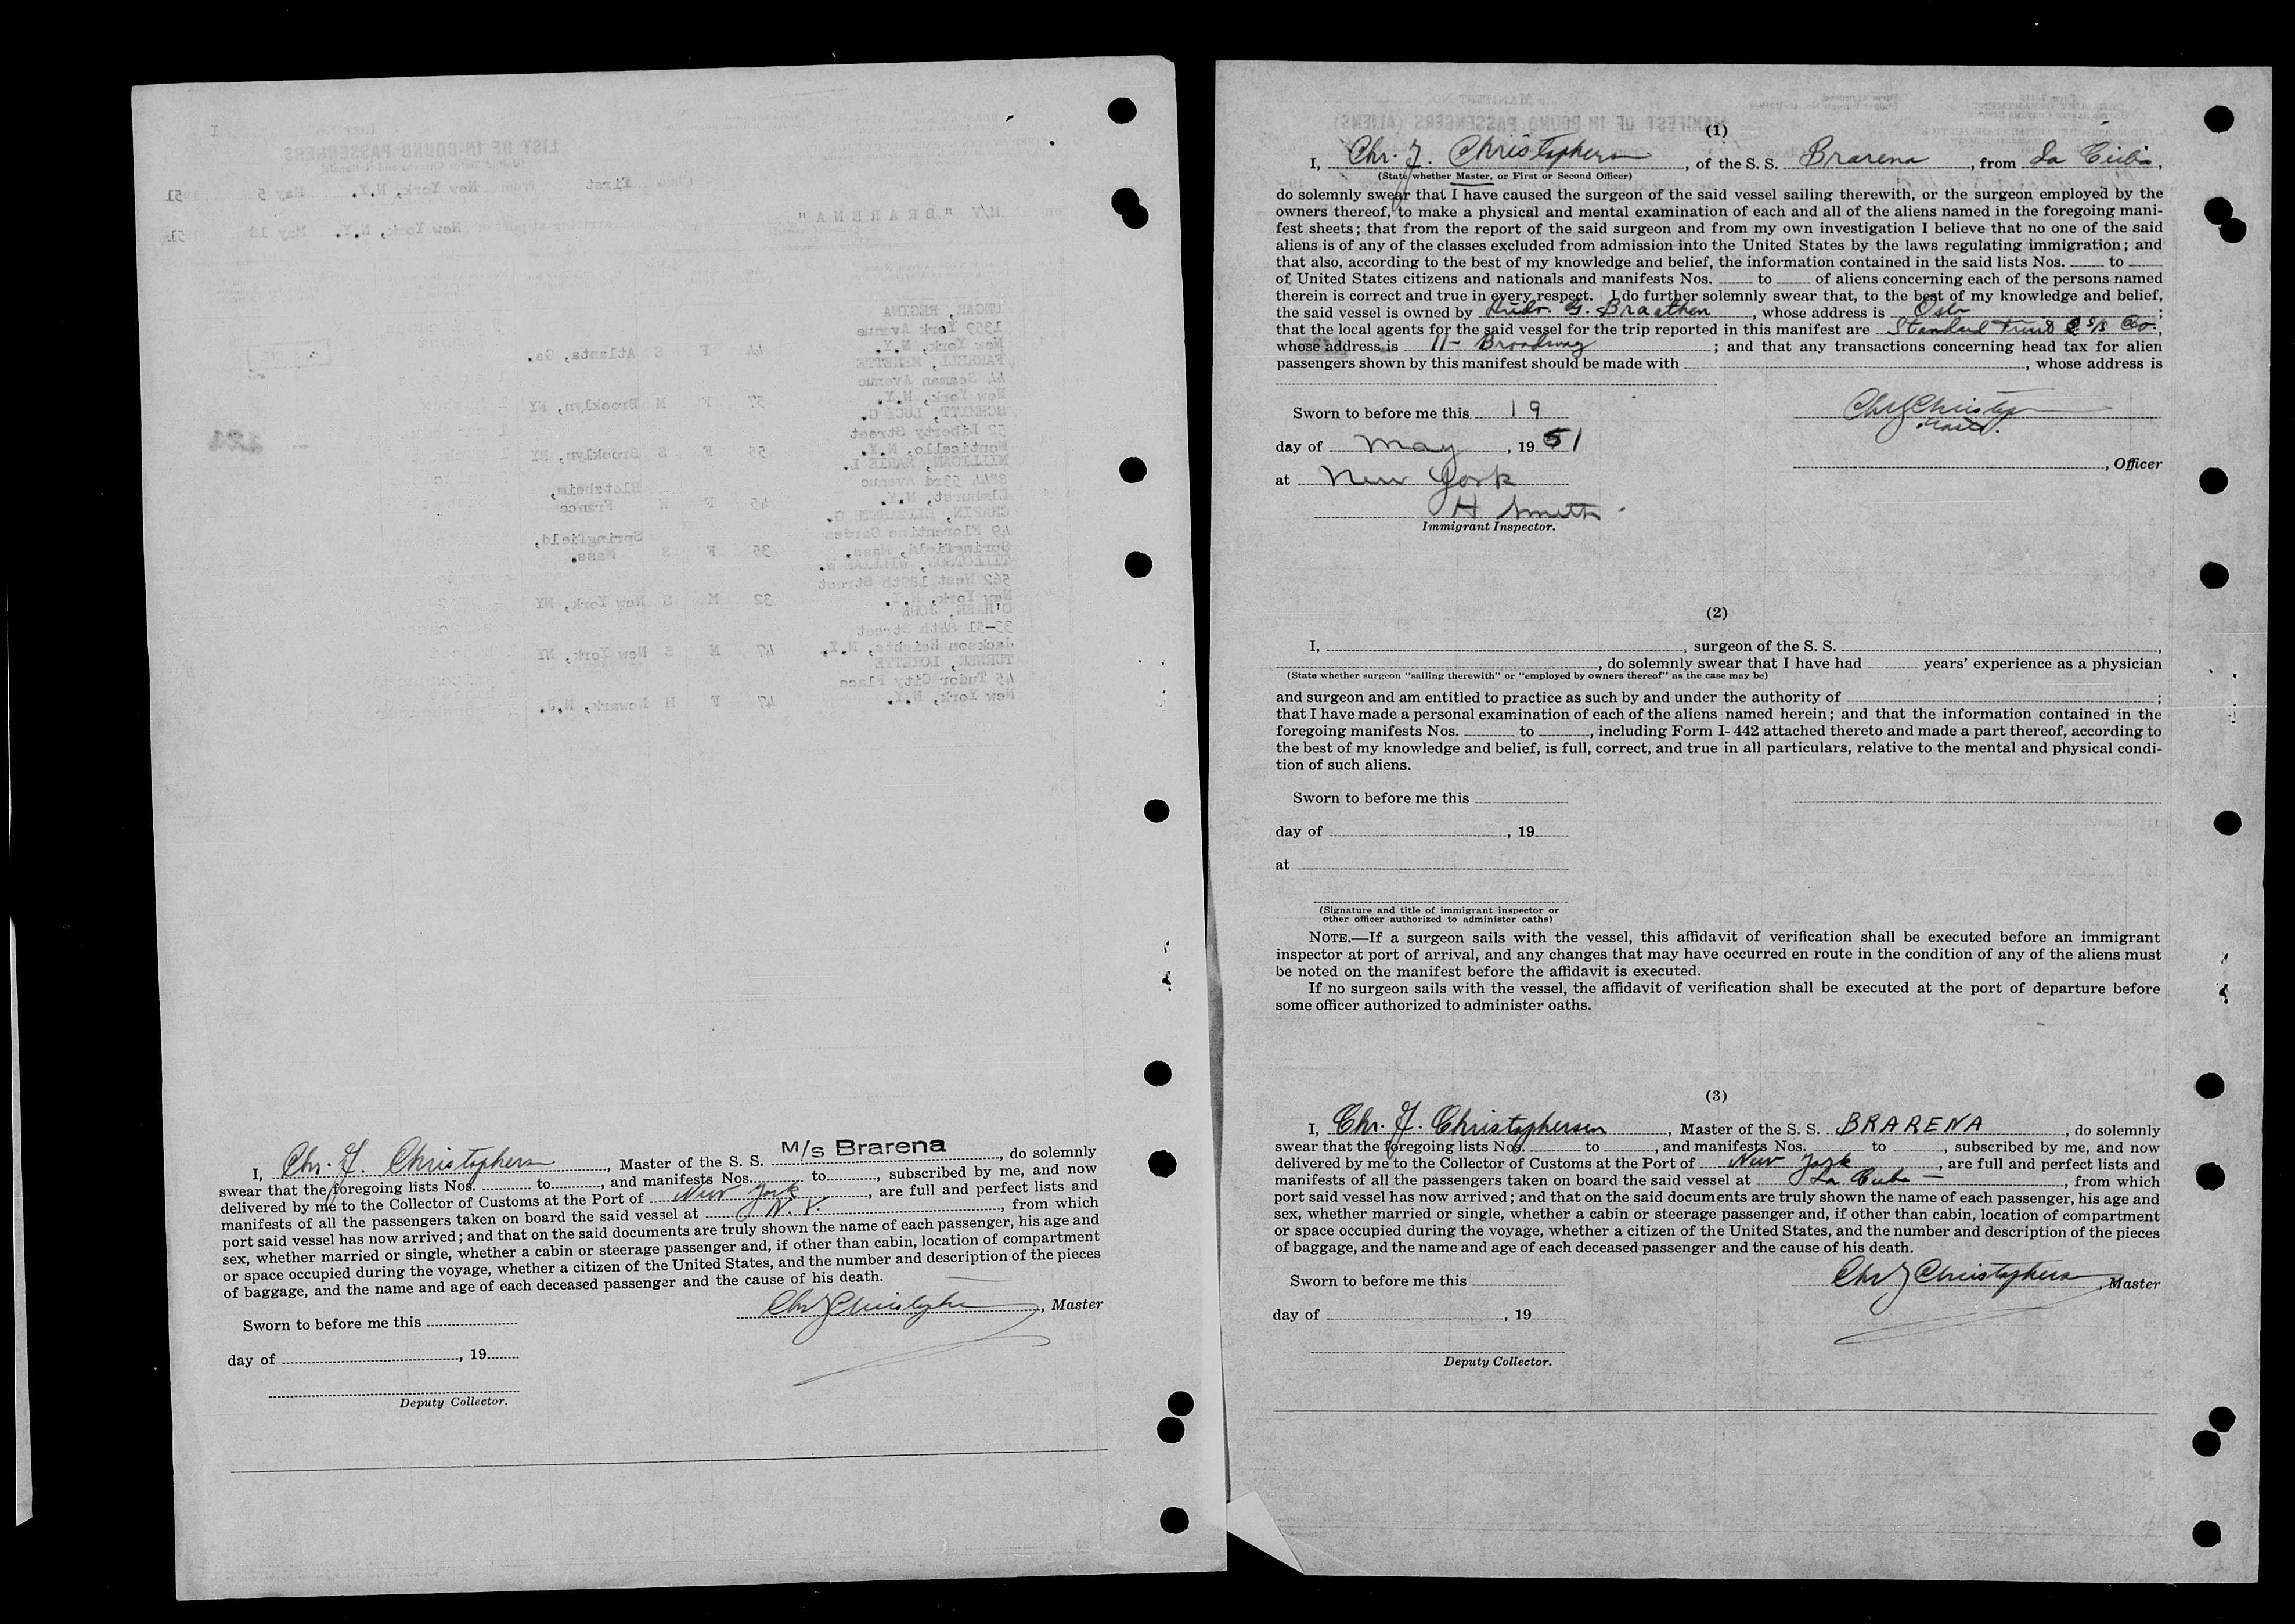 M/s Brarena
I, Chr. F. Christophersen, Master of the S. S. , do solemnly
swear that the foregoing lists Nos. to , and manifests Nos. to , subscribed by me, and now
delivered by me to the Collector of Customs at the Port of New York , are full and perfect lists and
manifests of all the passengers taken on board the said vessel at N.Y. , from which
port said vessel has now arrived; and that on the said documents are truly shown the name of each passenger, his age and
sex, whether married or single, whether a cabin or steerage passenger and, if other than cabin, location of compartment
or space occupied during the voyage, whether a citizen of the United States, and the number and description of the pieces
of baggage, and the name and age of each deceased passenger and the cause of his death.
Chr F Christophersen, Master
Sworn to before me this
day of , 19
Deputy Collector.
(1)
I, Chr. F. Christophersen , of the S. S. Brarena , from La Ceiba ,
(State whether Master, or First or Second Officer)
do solemnly swear that I have caused the surgeon of the said vessel sailing therewith, or the surgeon employed by the
owners thereof, to make a physical and mental examination of each and all of the aliens named in the foregoing mani-
fest sheets; that from the report of the said surgeon and from my own investigation I believe that no one of the said
aliens is of any of the classes excluded from admission into the United States by the laws regulating immigration; and
that also, according to the best of my knowledge and belief, the information contained in the said lists Nos. to
of United States citizens and nationals and manifests Nos. to of aliens concerning each of the persons named
therein is correct and true in every respect. I do further solemnly swear that, to the best of my knowledge and belief,
the said vessel is owned by G. Braathen , whose address is Oslo ;
that the local agents for the said vessel for the trip reported in this manifest are Standard Fruit & S/S Co. ,
whose address is 11- Broadway ; and that any transactions concerning head tax for alien
passengers shown by this manifest should be made with , whose address is
Sworn to before me this 19
Chr F Christophersen
Master.
day of May , 1951
, Officer
at New York
H Smith
Immigrant Inspector.
(2)
I, , surgeon of the S. S. ,
, do solemnly swear that I have had years' experience as a physician
(State whether surgeon "sailing therewith" or "employed by owners thereof" as the case may be)
and surgeon and am entitled to practice as such by and under the authority of ;
that I have made a personal examination of each of the aliens named herein; and that the information contained in the
foregoing manifests Nos. to , including Form I-442 attached thereto and made a part thereof, according to
the best of my knowledge and belief, is full, correct, and true in all particulars, relative to the mental and physical condi-
tion of such aliens.
Sworn to before me this
day of , 19
at
(Signature and title of immigrant inspector or
other officer authorized to administer oaths)
NOTE.—If a surgeon sails with the vessel, this affidavit of verification shall be executed before an immigrant
inspector at port of arrival, and any changes that may have occurred en route in the condition of any of the aliens must
be noted on the manifest before the affidavit is executed.
If no surgeon sails with the vessel, the affidavit of verification shall be executed at the port of departure before
some officer authorized to administer oaths.
(3)
I, Chr. F. Christophersen , Master of the S. S. BRARENA , do solemnly
swear that the foregoing lists Nos. to , and manifests Nos. to , subscribed by me, and now
delivered by me to the Collector of Customs at the Port of New York , are full and perfect lists and
manifests of all the passengers taken on board the said vessel at La Ceiba , from which
port said vessel has now arrived; and that on the said documents are truly shown the name of each passenger, his age and
sex, whether married or single, whether a cabin or steerage passenger and, if other than cabin, location of compartment
or space occupied during the voyage, whether a citizen of the United States, and the number and description of the pieces
of baggage, and the name and age of each deceased passenger and the cause of his death.
Chr F Christophersen, Master
Sworn to before me this
day of , 19
Deputy Collector.